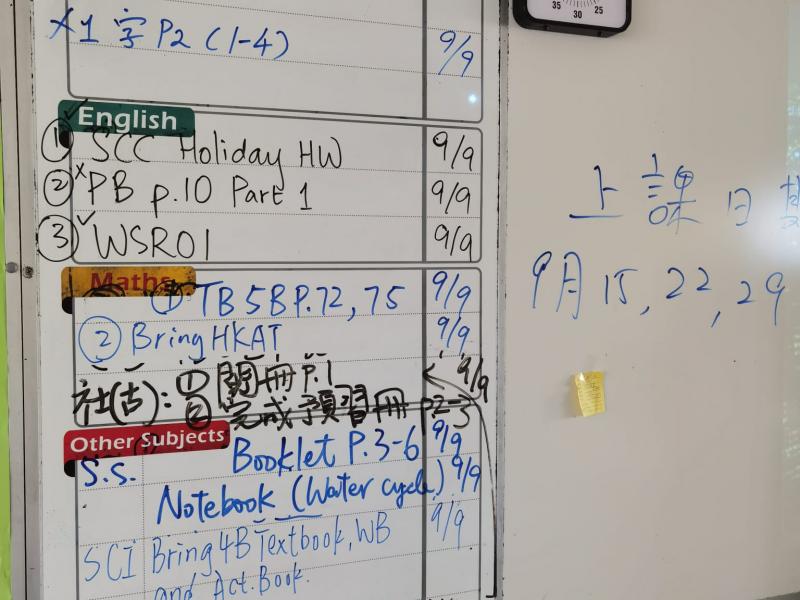 x 1 字 P2 (1-4) 9/9
English
① SCC Holiday HW 9/9
② PB p.10 Part 1 9/9
③ WSR01 9/9
Maths
① TB 5B P.72, 75 9/9
② Bring HKAT 9/9
社(古): ① 閱冊 P.1 9/9
② 完成預習冊 P2-3
Other Subjects
S.S. Booklet P.3-6 9/9
Notebook (Water cycle) 9/9
SCI Bring 4B Textbook, WB 9/9
and Act. Book.
35 30 25
上課日
9月 15, 22, 29